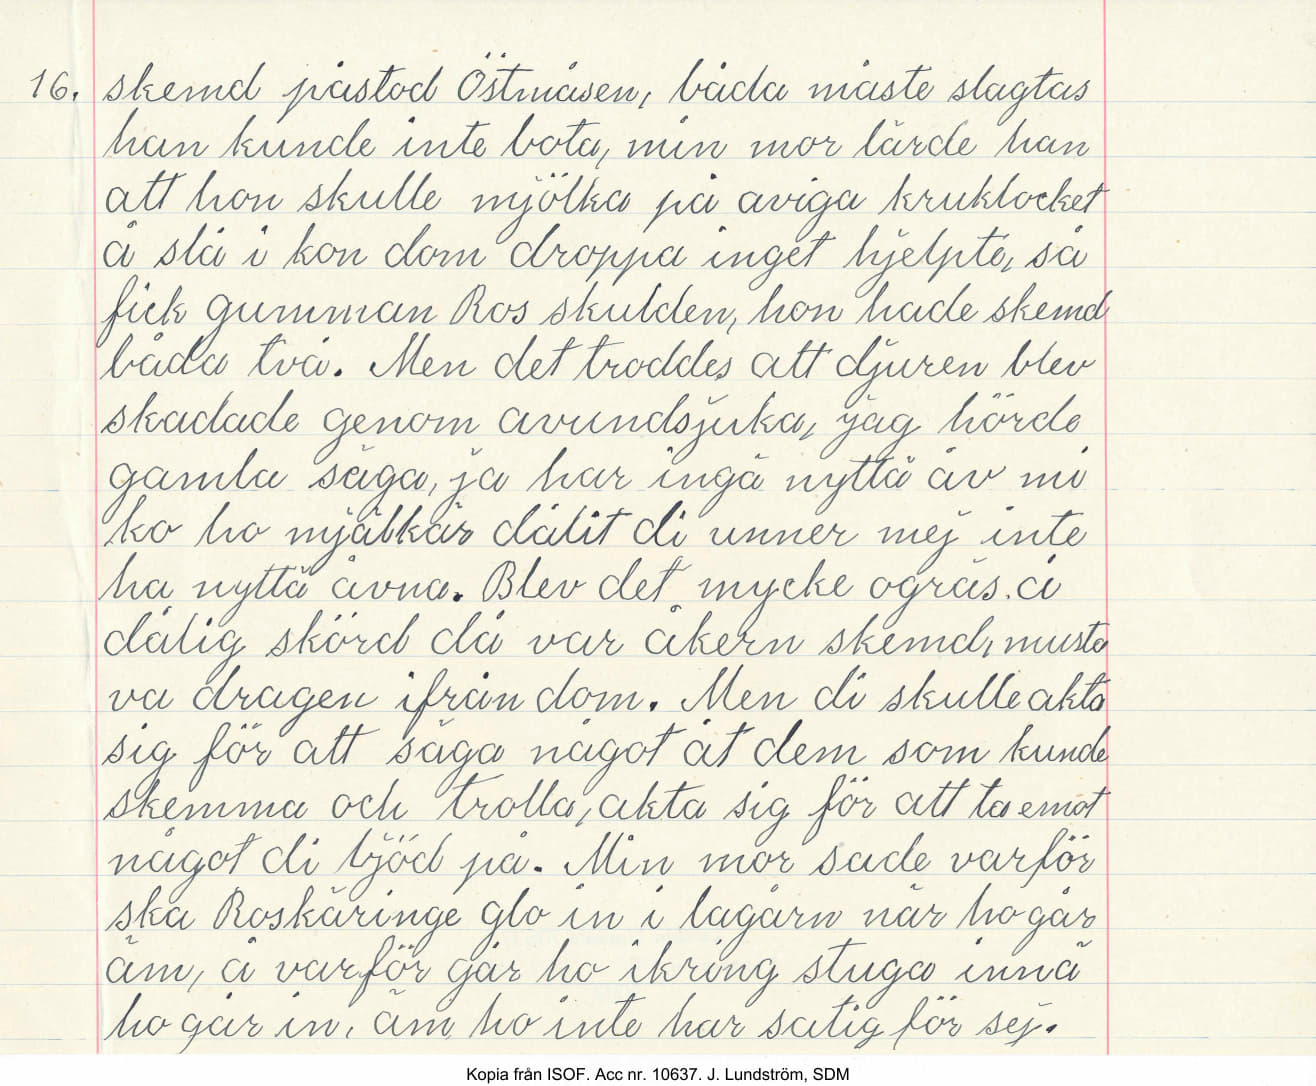 16. skemd påstod Östmåsen, båda måste slagtas
han kunde inte bota, min mor lärde han
att hon skulle mjölka på aviga kruklocket
å slå i kon dom droppa inget hjelpte, så
fick gumman Ros skulden, hon hade skemd
båda två. Men det troddes att djuren blev
skadade genom avundsjuka, jag hörde
gamla säga, ja har ingä nyttä äv mi
ko ho mjälkär dålit di unner mej inte
ha nyttä ävna. Blev det mycke ogräs. å
dålig skörd då var åkern skemd, musta
va dragen ifrån dom. Men di skulle akta
sig för att säga något åt dem som kunde
skemma och trolla, akta sig för att ta emot
något di bjöd på. Min mor sade varför
ska Roskäringe glo in i lagårn när ho går
äm, å varför går ho ikring stuga innä
ho går in, äm ho inte har satig för sej.
Kopia från ISOF. Acc nr. 10637. J. Lundström, SDM